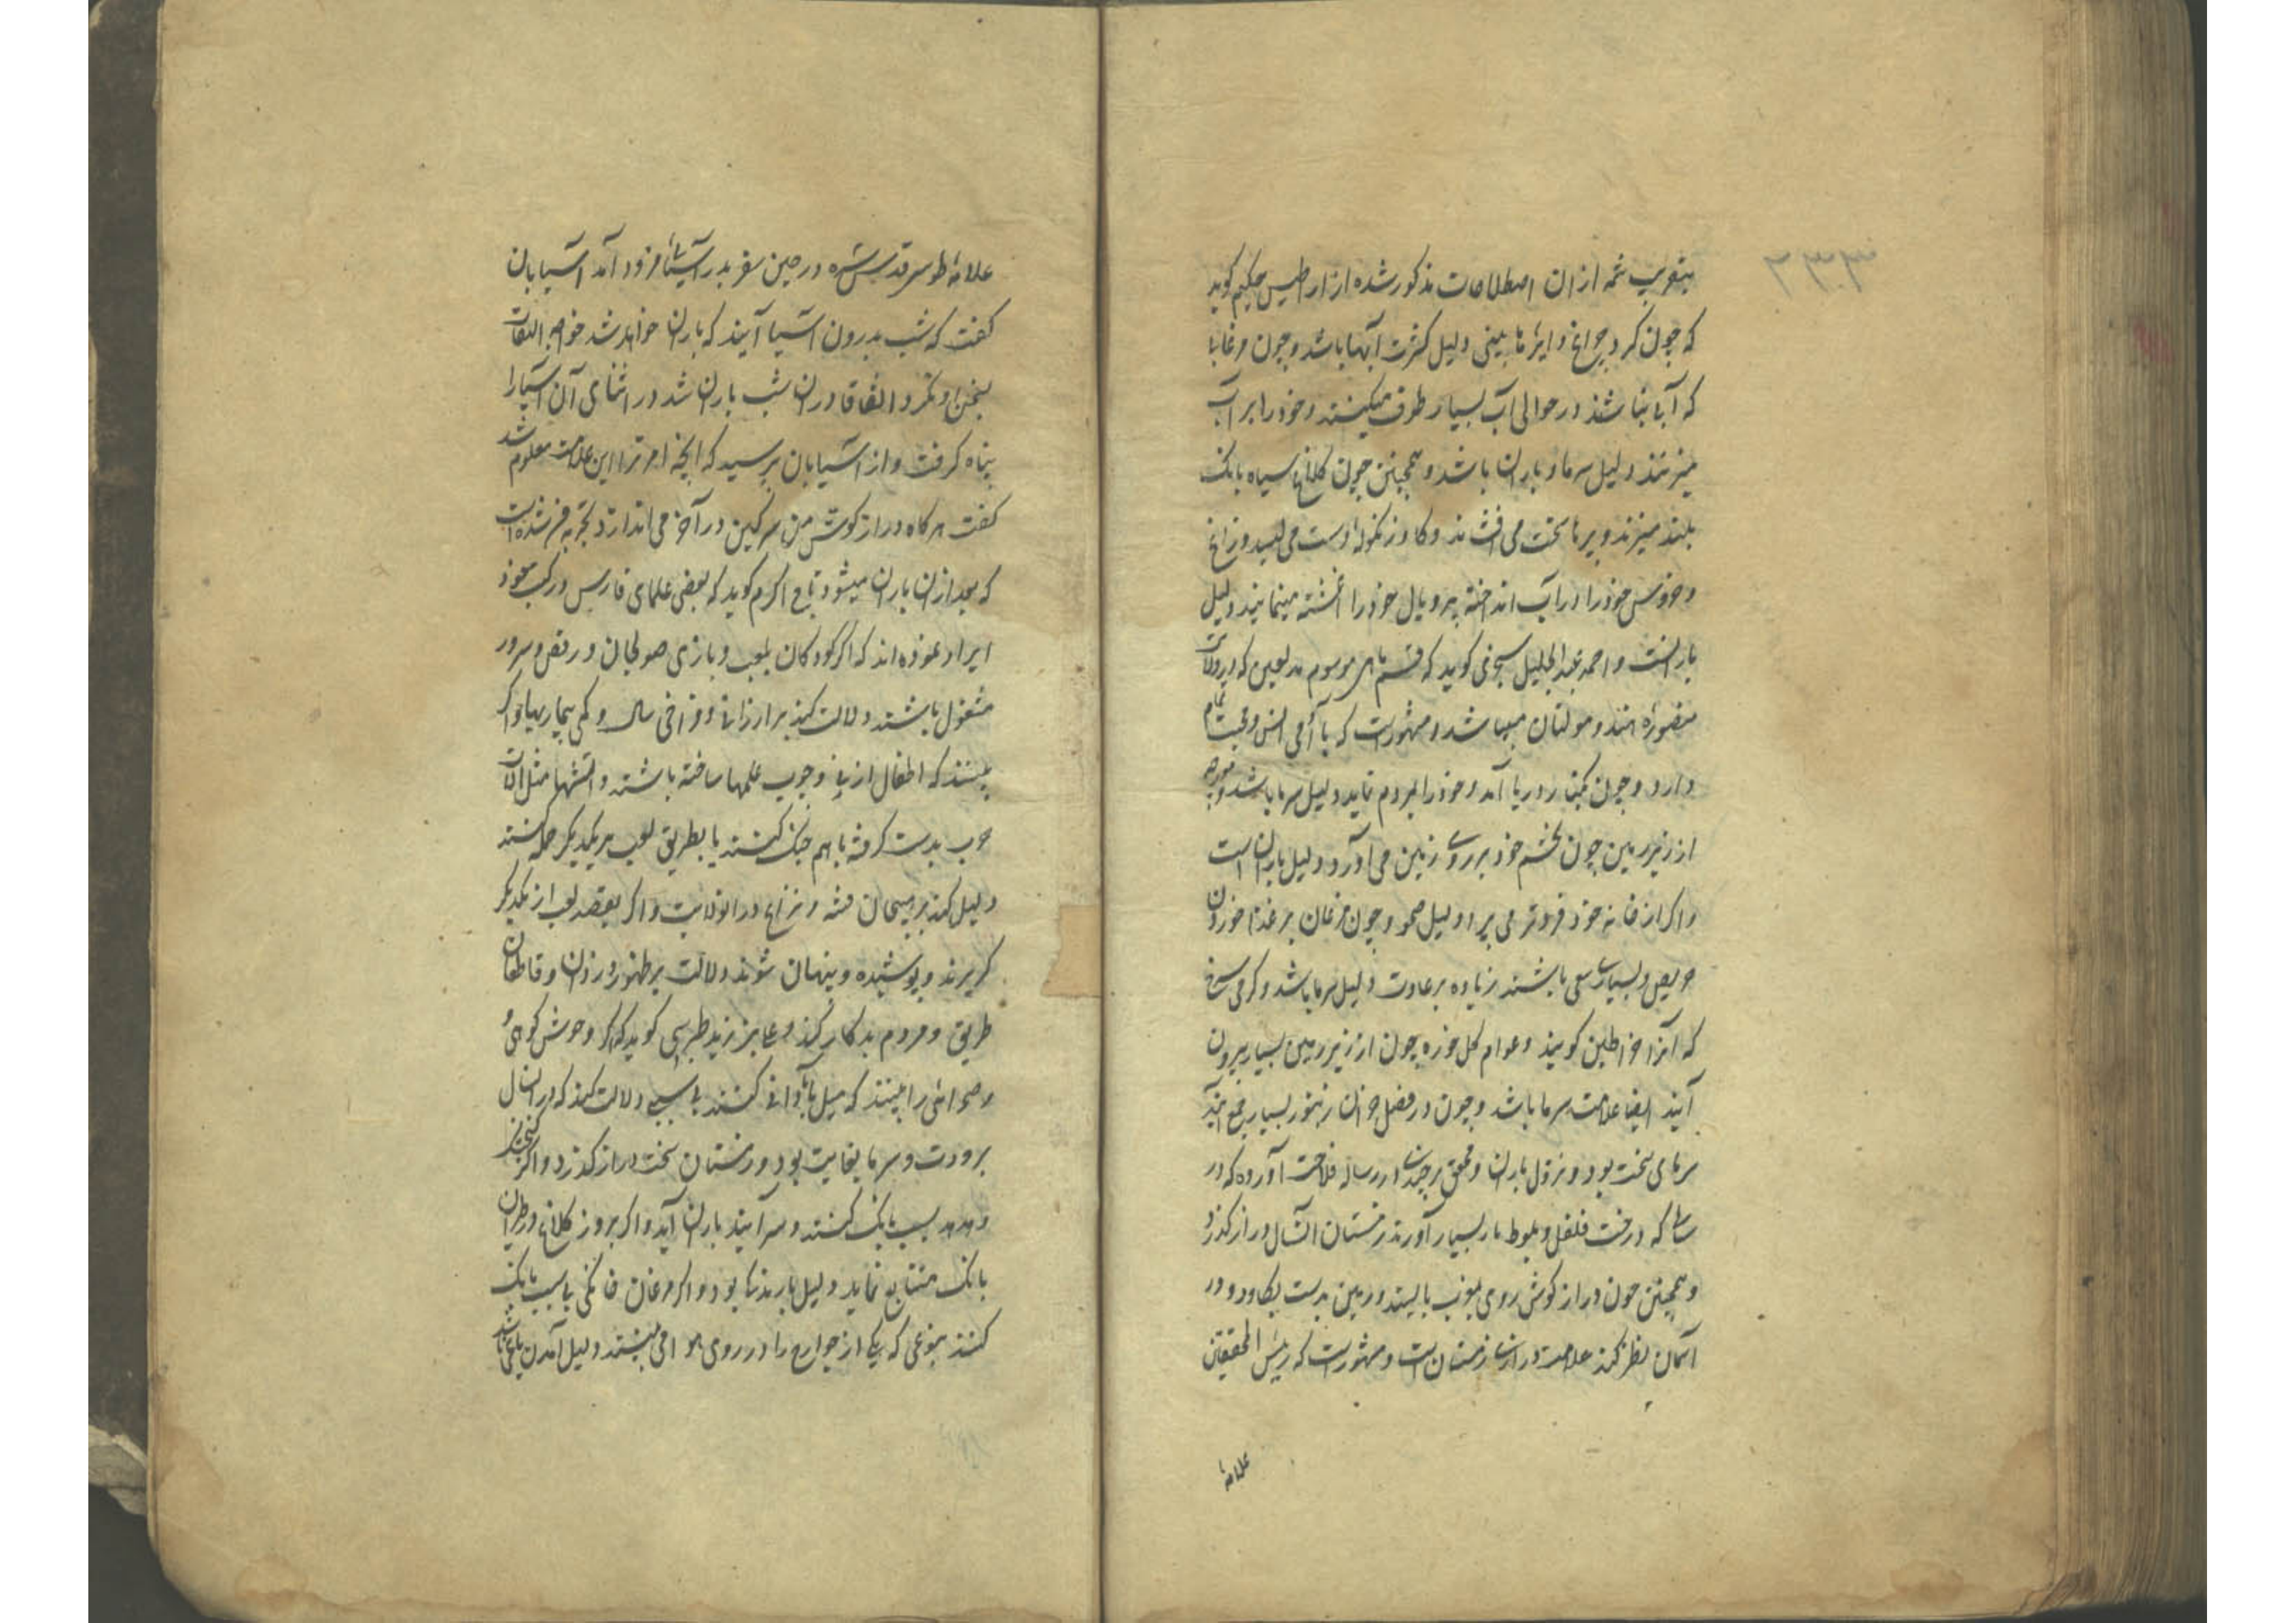 ۲۳۳
بتقریب شمه از ان اصطلاحات مذکور شده از ارطیس حکیم کوید
که چون کرد چراغ دایرها بینی دلیل کثرت آبها باشد و چون مرغابا
که آبی نباشند در حوالی آب بسیار طوف میکنند و خود را بر آب
میزنند دلیل سرما و باران باشد و همچنین چون کلاغ سیاه بانک
بلند میزند و پرها سخت می افشاند و کاو زنکوله دست می لیسد و زاغ
و خروس خود را در آب انداخته پر و بال خود را اغشته مینمایند دلیل
بارانست و احمد عبد الجلیل سجزی کوید که قسم ماهی موسوم بدلفین که در ولایت
منصوره هند و مولتان میباشد و مشهورست که با آدمی انس و محبت تمام
دارد و چون بکنار دریا آمد و خود را بمردم نماید دلیل سرما باشد و مورچه
از زیر زمین چون تخم خود بر روی زمین می آورد دلیل باران است
و اکر از خانه خود فروتر می برد دلیل صحو و چون مرغان بر غذا خوردن
حریص و بسیار سعی باشند زیاده بر عادت دلیل سرما باشد و کرمی سرخ
که آنرا خراطین کویند و عوام کل خوره چون از زیر زمین بسیار بیرون
آیند ایضا علامت سرما باشد و چون در فصل خزان زنبور بسیار جمع آید
سرمای سخت بود و نزول باران و محقق برجندی در رساله فلاحت آورده که در
سالی که درخت فلفل و بلوط بار بسیار آورند زمستان آنسال دراز کذرد
و همچنین چون دراز کوش روی بمغرب بایستد و زمین بدست بکاود و در
آسمان نظر کند علامت درازی زمستان است و مشهورست که رئیس المحققین
علامه
علامه طوسی قدس سره در حین سفر بدر آسیائی فرود آمد آسیابان
کفت که شب بدرون آسیا آیند که باران خواهد شد خواجه التفات
بسخن او نکرد اتفاقا در ان شب باران شد در اثنای آن آسیا را
پناه کرفت و از آسیابان پرسید که ایخواجه ترا این علامت معلوم شد
کفت هرکاه دراز کوش من سرکین در آخر می اندازد تجربه من شده است
که بعد از ان باران میشود تاج اکرم کوید که بعضی علمای فارس در کتب خود
ایراد نموده اند که اکر کودکان بلعب و بازی صولجان و رقص و سرور
مشغول باشند دلالت کند بر ارزانی و فراخی سال و کمی بیماریها و اکر
بینند که اطفال از نی و چوب علمها ساخته باشند و آتشها مثل آلات
حرب بدست کرفته با هم جنک کنند یا بطریق لعب بر یکدیکر حمله کنند
دلیل کند بر هیجان فتنه و نزاع در انولایت و اکر بقصد لعب از یکدیکر
کریزند و پوشیده و پنهان شوند دلالت بر ظهور دزدان و قاطعان
طریق و مردم بدکار کند و عابر زید طبرسی کوید که اکر وحوش کوهی و
صحرائی را بینند که میل بآبادانی کنند بی سببی دلالت کند که در انسال
برودت و سرما بغایت بود و زمستان سخت دراز کذرد و اکر کنجشک
و هدهد بسبب بانک کنند و سرآیند باران آید و اکر بروز کلاغ در طیران
بانک متتابع نماید دلیل بارندکی بود و اکر مرغان خانکی بی سبب بانک
کنند بنوعی که یکی از جوارح را در روی هوا می بینند دلیل آمدن یاغی باشد